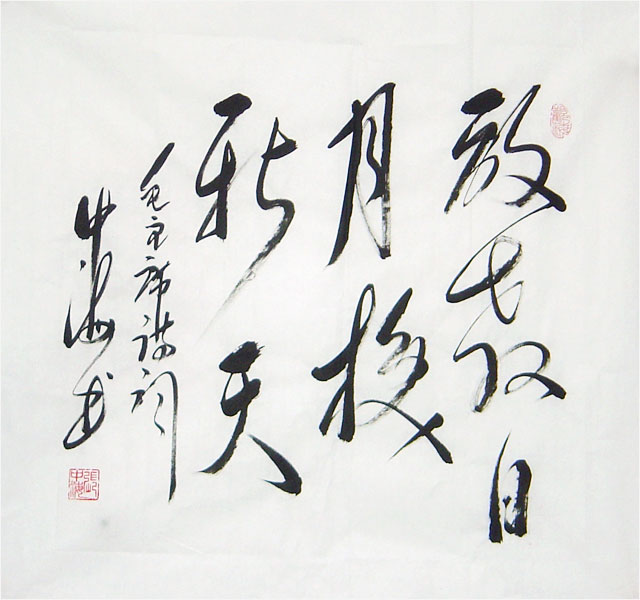 敢教日
月换
新天
毛主席诗词
中海书